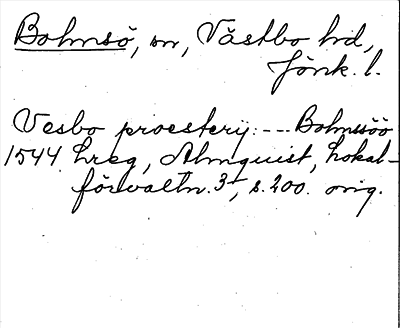 Bolmsö, sn, Västbo hd,
Jönk. l.
Vesbo proesterij: --- Bolmssöö
1544 hreg, Almquist, Lokal-
förvaltn. 3, s. 200. orig.